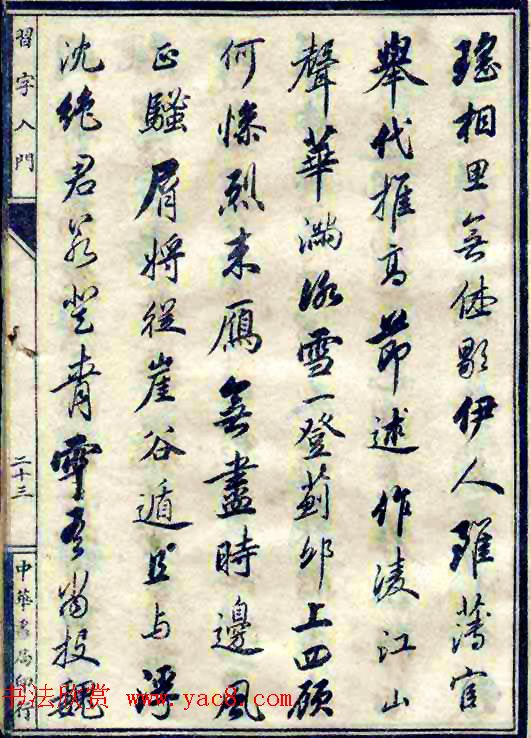 瑤相思無休歇伊人雖薄宦
舉代推高節述作淩江山
聲華滿冰雪一登薊邱上四顧
何慘烈來雁無盡時邊風
正騷屑將從崖谷遁且與浮
沈絕君若登青雲吾當投魏
習字入門
二十三
中華書局印行
书法欣赏 www.yac8.com